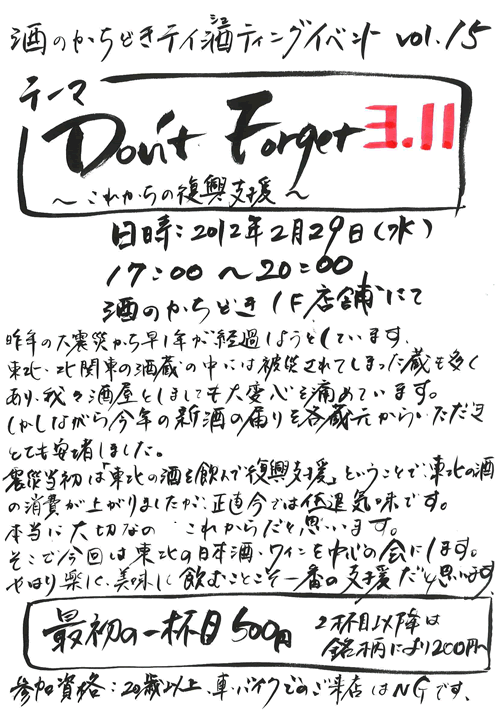 酒のかちどきテイ酒ティングイベント vol.15
シュ
テーマ
Don't Forget 3.11
～これからの復興支援～
日時：2012年2月29日（水）
17:00～20:00
酒のかちどき 1F店舗にて
昨年の大震災から早1年が経過しようとしています。
東北・北関東の酒蔵の中には被災されてしまった蔵も多く
あり、我々酒屋としましても大変心を痛めています。
しかしながら今年の新酒の届りを各蔵元からいただき
とても安堵しました。
震災当初は「東北の酒を飲んで復興支援」ということで、東北の酒
の消費が上がりましたが、正直今では低迷気味です。
本当に大切なの これからだと思います。
そこで今回は東北の日本酒・ワインを中心の会にします。
やはり楽しく、美味しく飲むことこそ一番の支援だと思います。
最初の一杯目500円 2杯目以降は
銘柄により200円～
参加資格：20歳以上、車・バイクでのご来店はNGです。